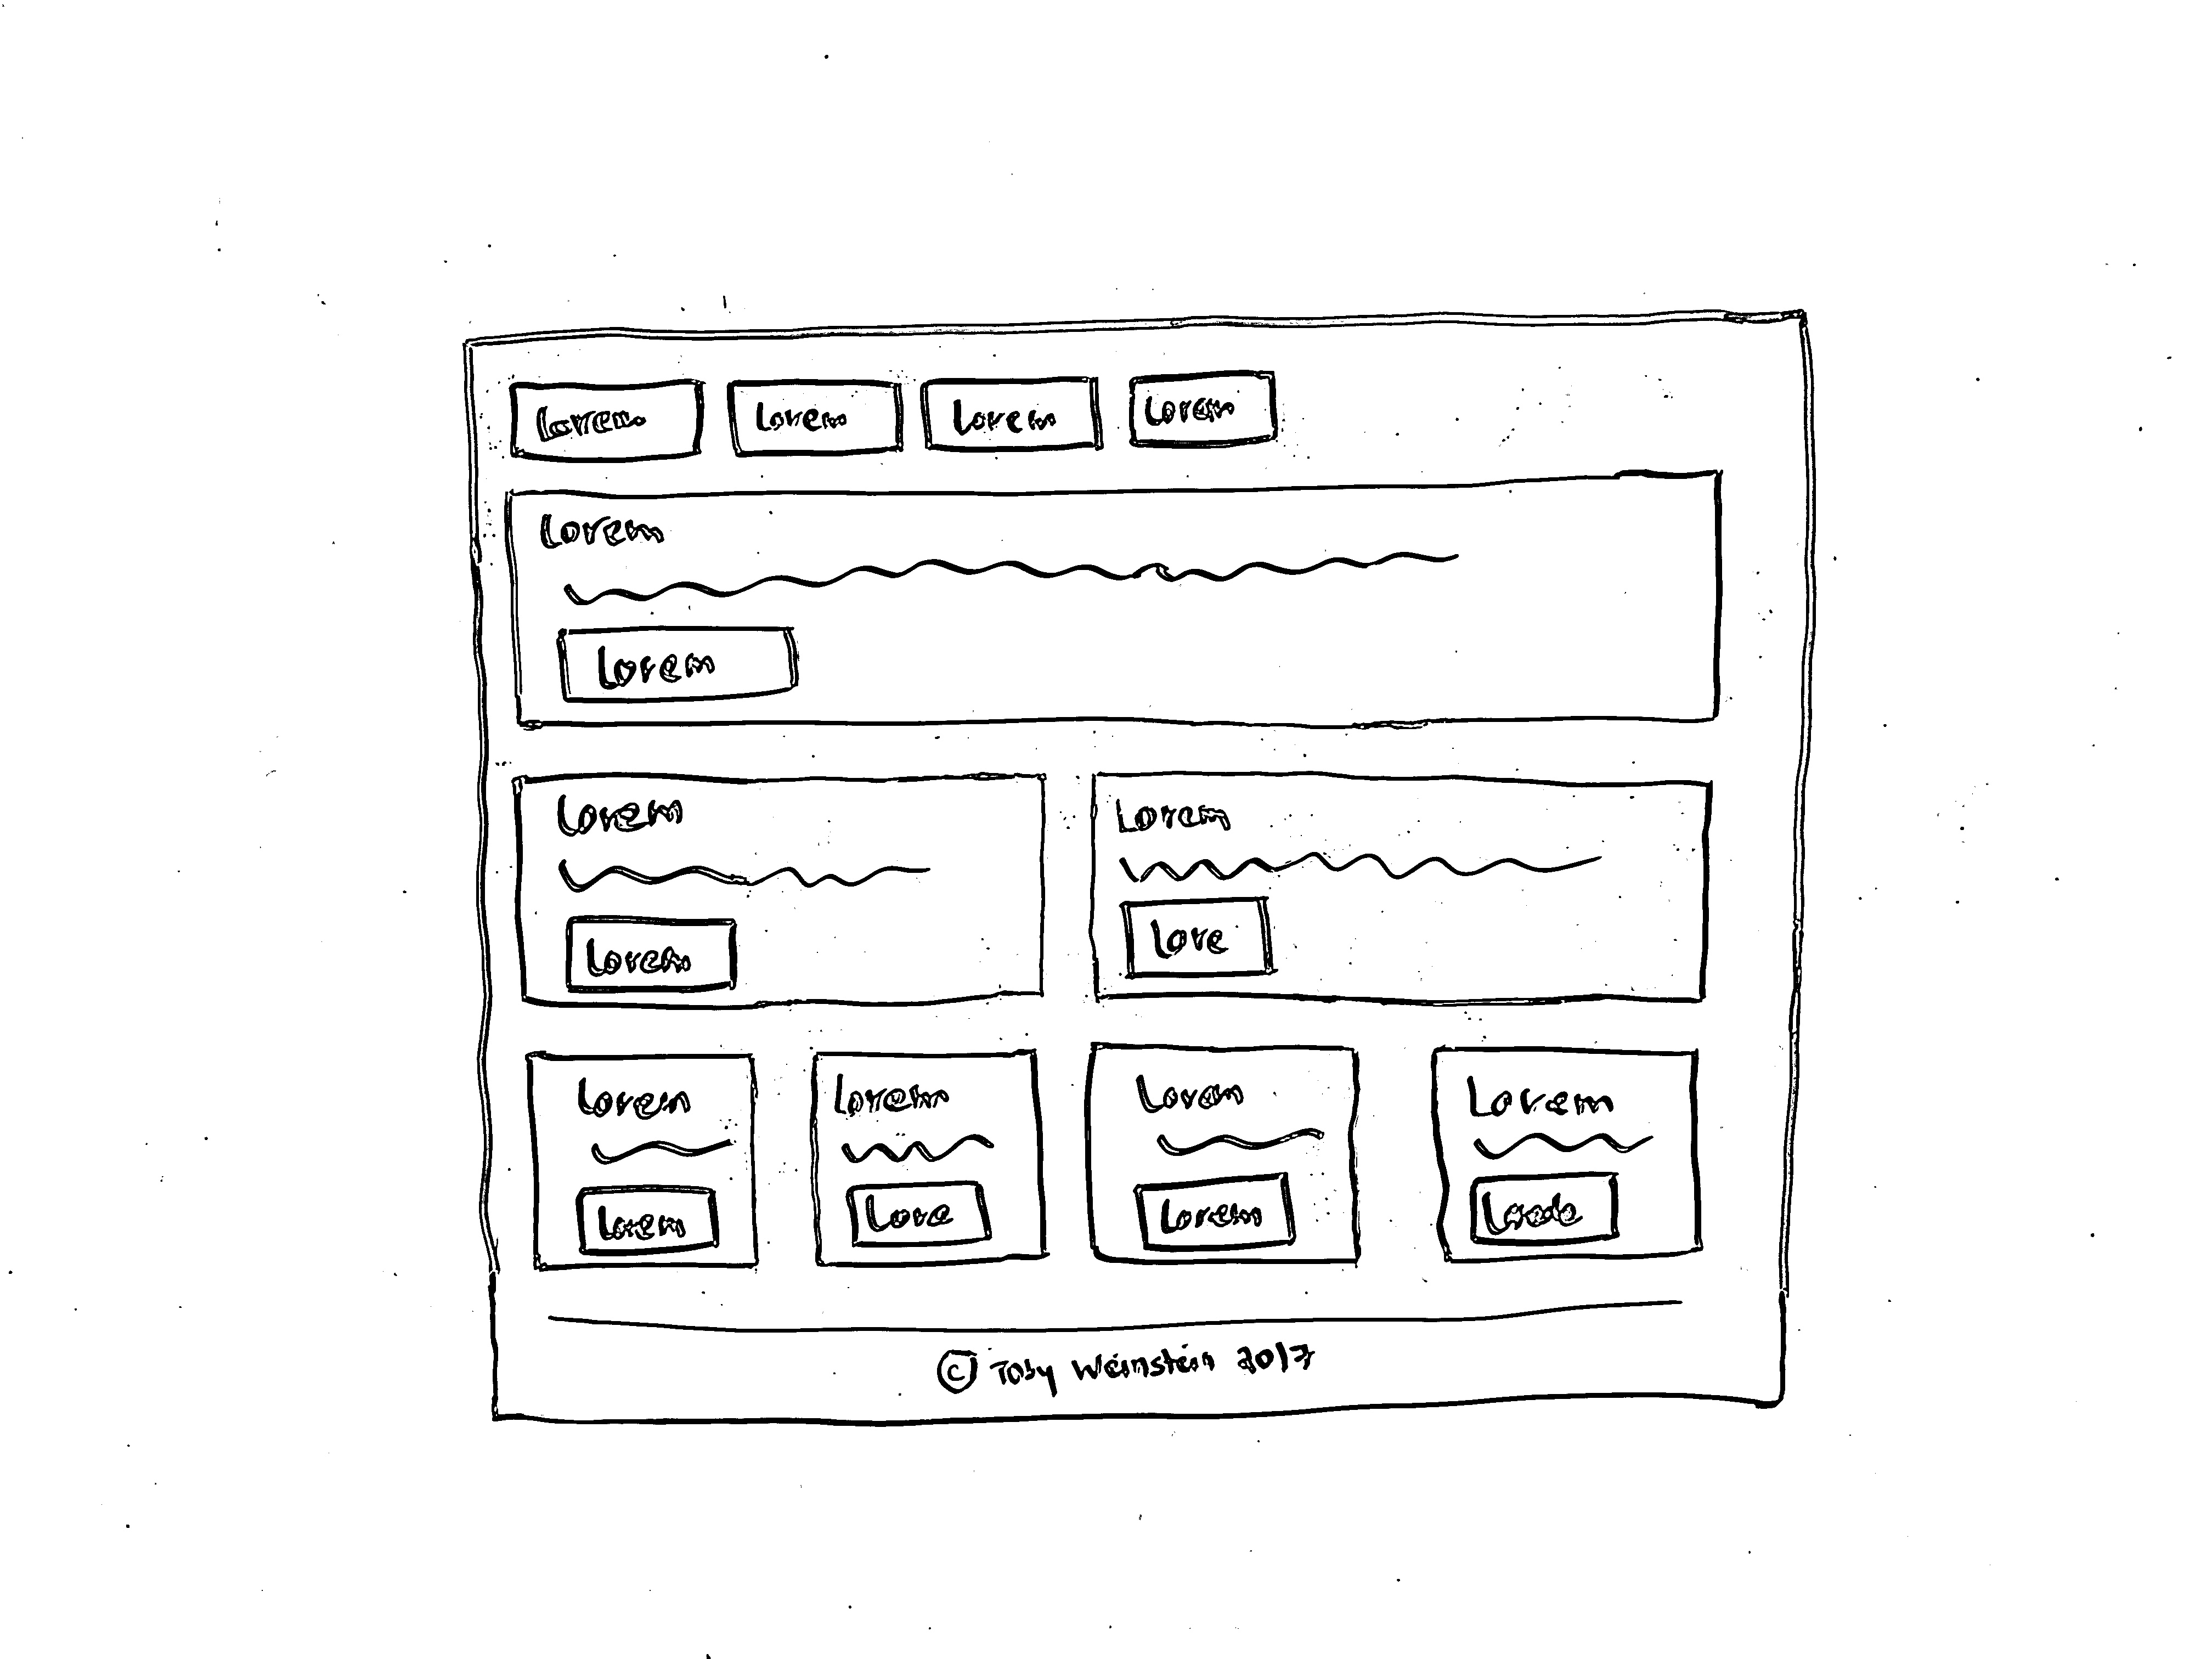 Lorem Lorem Lorem Lorem
Lorem
Lorem
Lorem Lorem
Lorem Love
Lorem Lorem Lorem Lorem
Lorem Love Lorem
© Toby Weinstein 2017